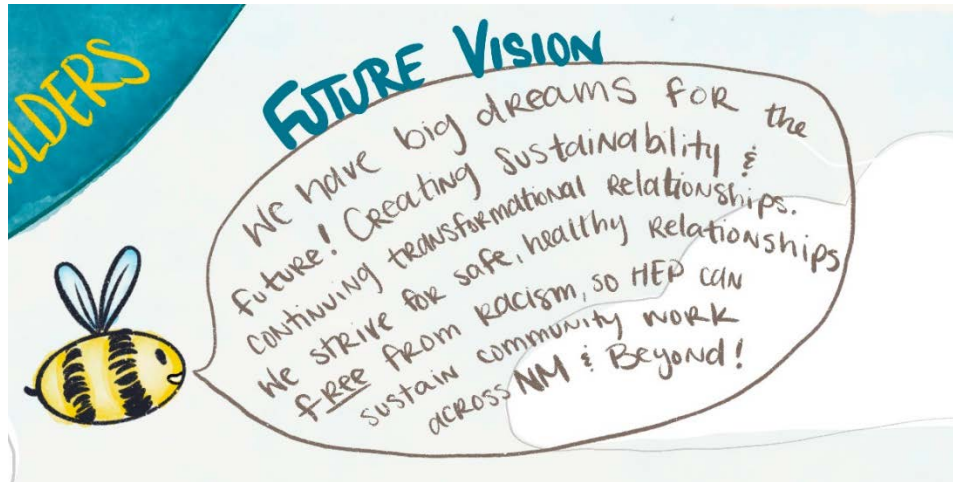 OLDERS
FUTURE VISION
We have big dreams for the
future! Creating sustainability &
continuing transformational relationships.
We strive for safe, healthy relationships
free from racism, so HEP can
sustain community work
across NM & Beyond!